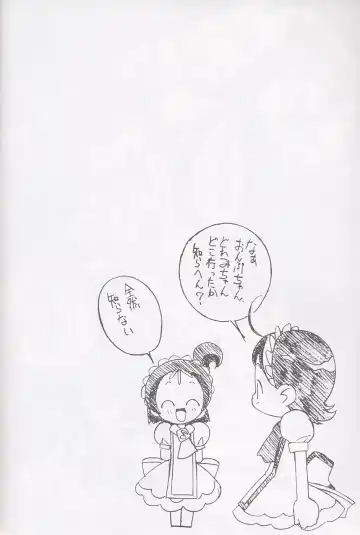 なぁ
おんぷちゃん、
どれみちゃん
どこ行ったか
知らへん？
全然
知らない